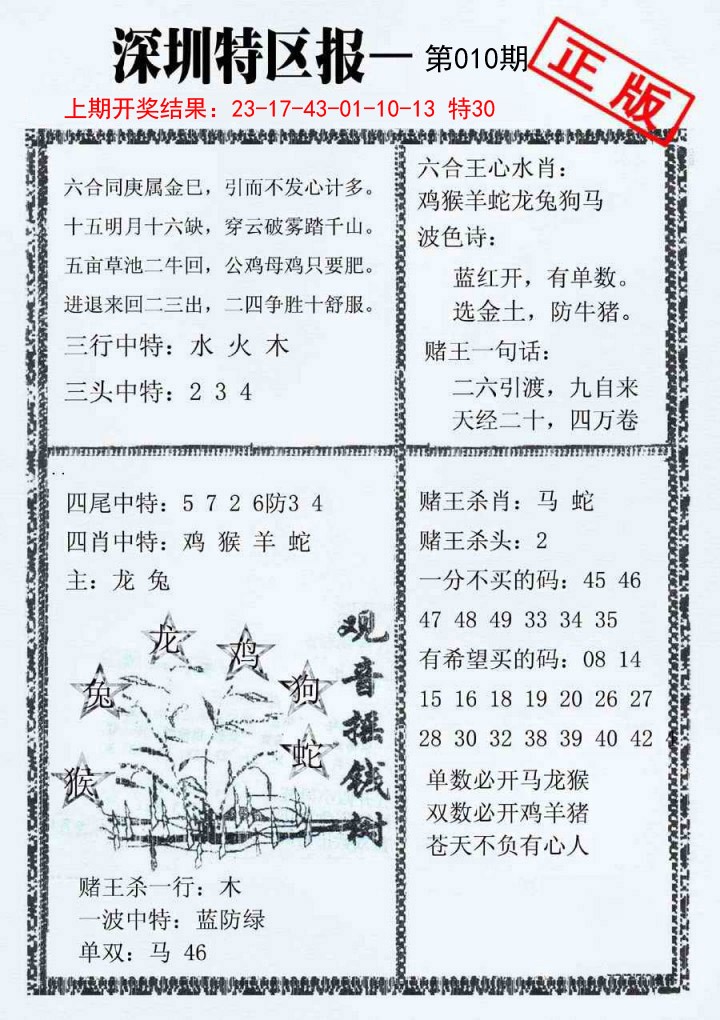 深圳特区报一 第010期
正版
上期开奖结果：23-17-43-01-10-13 特30
六合同庚属金巳，引而不发心计多。
十五明月十六缺，穿云破雾踏千山。
五亩草池二牛回，公鸡母鸡只要肥。
进退来回二三出，二四争胜十舒服。
三行中特：水 火 木
三头中特：2 3 4
六合王心水肖：
鸡猴羊蛇龙兔狗马
波色诗：
蓝红开，有单数。
选金土，防牛猪。
赌王一句话：
二六引渡，九自来
天经二十，四万卷
四尾中特：5 7 2 6防3 4
四肖中特：鸡 猴 羊 蛇
主：龙 兔
龙
鸡
兔
狗
蛇
猴
观音摇钱树
赌王杀一行：木
一波中特：蓝防绿
单双：马 46
赌王杀肖：马 蛇
赌王杀头：2
一分不买的码：45 46
47 48 49 33 34 35
有希望买的码：08 14
15 16 18 19 20 26 27
28 30 32 38 39 40 42
单数必开马龙猴
双数必开鸡羊猪
苍天不负有心人